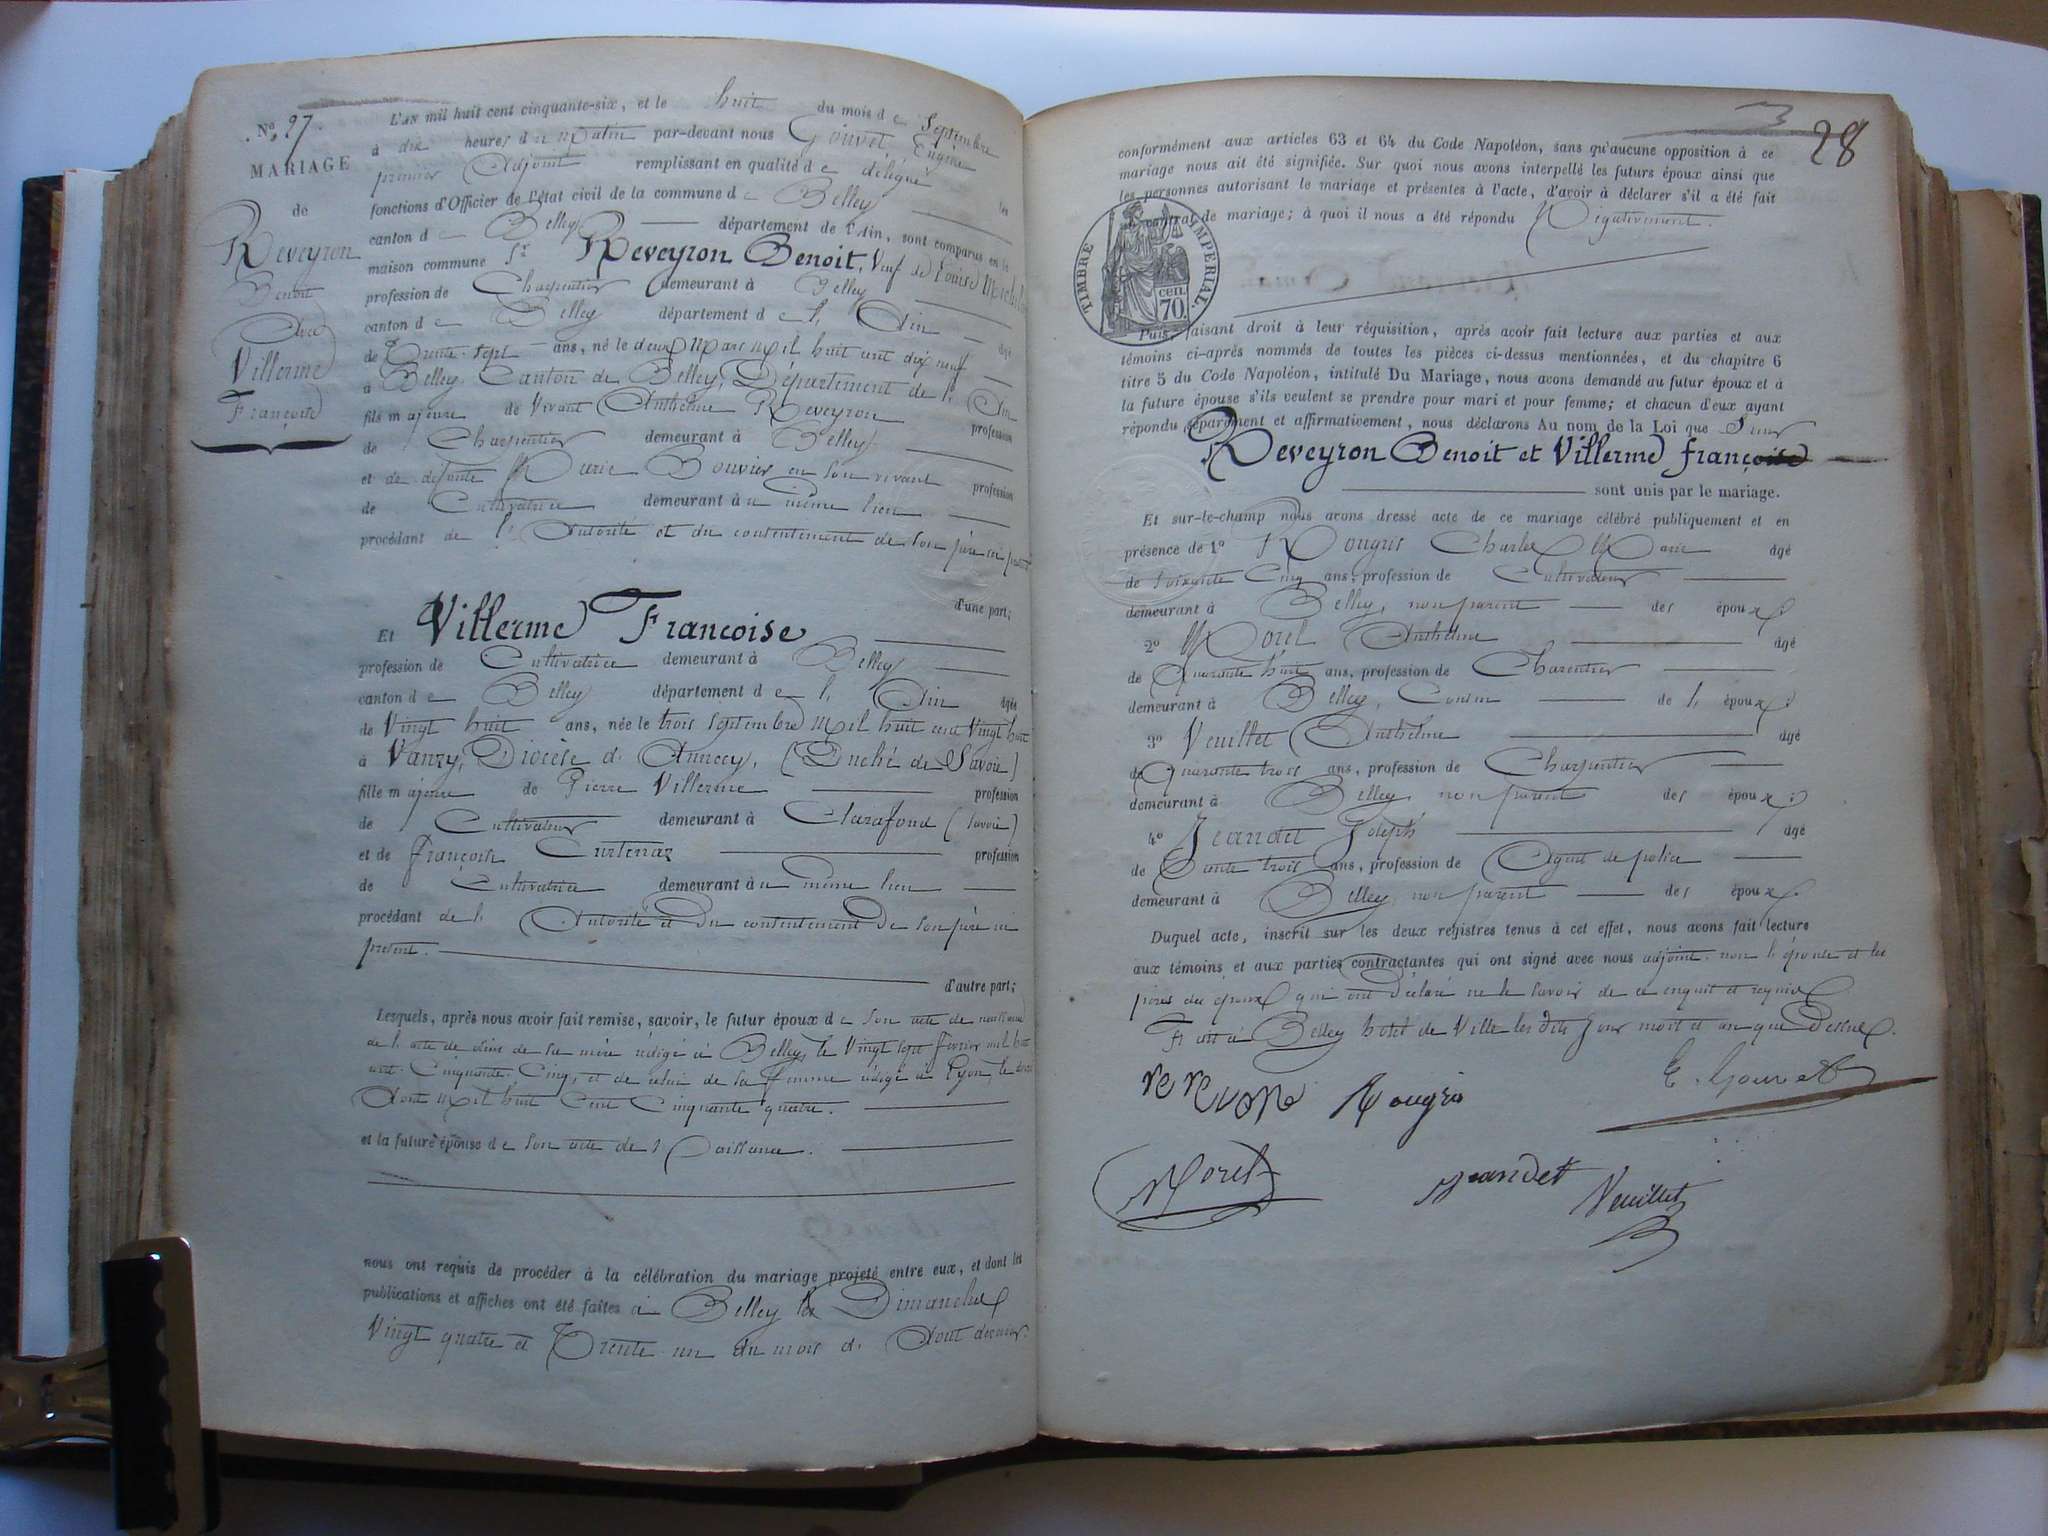 N.º 27.
MARIAGE
de
Reveyron
Benoit
Avec
Villerme
Françoise
L'AN mil huit cent cinquante-six, et le huit du mois de Septembre
à dix heures du matin par-devant nous Gouvet Eugène
premier Adjoint remplissant en qualité de délégué les
fonctions d'Officier de l'état civil de la commune de Belley
canton de Belley département de l'Ain, sont comparus en la
maison commune Sr Reveyron Benoit, Veuf de Louise
profession de Charpentier demeurant à Belley
canton de Belley département de l'Ain âgé
de Trente-sept ans, né le deux Mars Mil huit cent dix neuf
à Belley, Canton de Belley, Département de l'Ain
fils majeur de vivant Anthelme Reveyron profession
de Charpentier demeurant à Belley
et de défunte Marie Bouvier en son vivant profession
de Cultivatrice demeurant au même lieu
procédant de l'Autorité et du consentement de son père ici présent
d'une part;
Et Villerme Françoise
profession de Cultivatrice demeurant à Belley
canton de Belley département de l'Ain âgée
de Vingt huit ans, née le trois Septembre Mil huit cent Vingt huit
à Vanzy, Diocèse d'Annecy, (Duché de Savoie)
fille majeure de Pierre Villerme profession
de Cultivateur demeurant à Clarafond (Savoie)
et de Françoise Curtenaz profession
de Cultivatrice demeurant au même lieu
procédant de l'Autorité et du consentement de son père ici
présent.
d'autre part;
Lesquels, après nous avoir fait remise, savoir, le futur époux de son acte de naissance
de l'acte de décès de sa mère rédigé à Belley, le Vingt sept février mil huit
cent Cinquante Cinq, et de celui de sa femme rédigé à Lyon, le
Aout Mil huit Cent Cinquante quatre.
et la future épouse de son acte de Naissance.
nous ont requis de procéder à la célébration du mariage projeté entre eux, et dont les
publications et affiches ont été faites à Belley les Dimanches
Vingt quatre et Trente un du mois d'Aout dernier
28
conformément aux articles 63 et 64 du Code Napoléon, sans qu'aucune opposition à ce
mariage nous ait été signifiée. Sur quoi nous avons interpellé les futurs époux ainsi que
les personnes autorisant le mariage et présentes à l'acte, d'avoir à déclarer s'il a été fait
contrat de mariage; à quoi il nous a été répondu Négativement.
TIMBRE IMPÉRIAL.
70. cen.
Puis, faisant droit à leur réquisition, après avoir fait lecture aux parties et aux
témoins ci-après nommés de toutes les pièces ci-dessus mentionnées, et du chapitre 6
titre 5 du Code Napoléon, intitulé Du Mariage, nous avons demandé au futur époux et à
la future épouse s'ils veulent se prendre pour mari et pour femme; et chacun d'eux ayant
répondu séparément et affirmativement, nous déclarons Au nom de la Loi que
Reveyron Benoit et Villerme françoise
sont unis par le mariage.
Et sur-le-champ nous avons dressé acte de ce mariage célébré publiquement et en
présence de 1º Rougris Charles Marie âgé
de soixante Cinq ans, profession de Cultivateur
demeurant à Belley, non parent des époux
2º Morel Anthelme âgé
de Quarante huit ans, profession de Charentier
demeurant à Belley, Cousin de l'époux
3º Veuillet Anthelme âgé
de Quarante trois ans, profession de Charpentier
demeurant à Belley, non parent des époux
4º Jeandet Joseph âgé
de Trente trois ans, profession de Agent de police
demeurant à Belley, non parent des époux.
Duquel acte, inscrit sur les deux registres tenus à cet effet, nous avons fait lecture
aux témoins et aux parties contractantes qui ont signé avec nous adjoint, non l'épouse et les
pères des époux qui ont déclaré ne le savoir de ce enquis et requis
Fait à Belley hotel de Ville les dits Jour mois et an que Dessus.
reveyron Rougris E. Gouvet
Morel Jeandet Veuillet